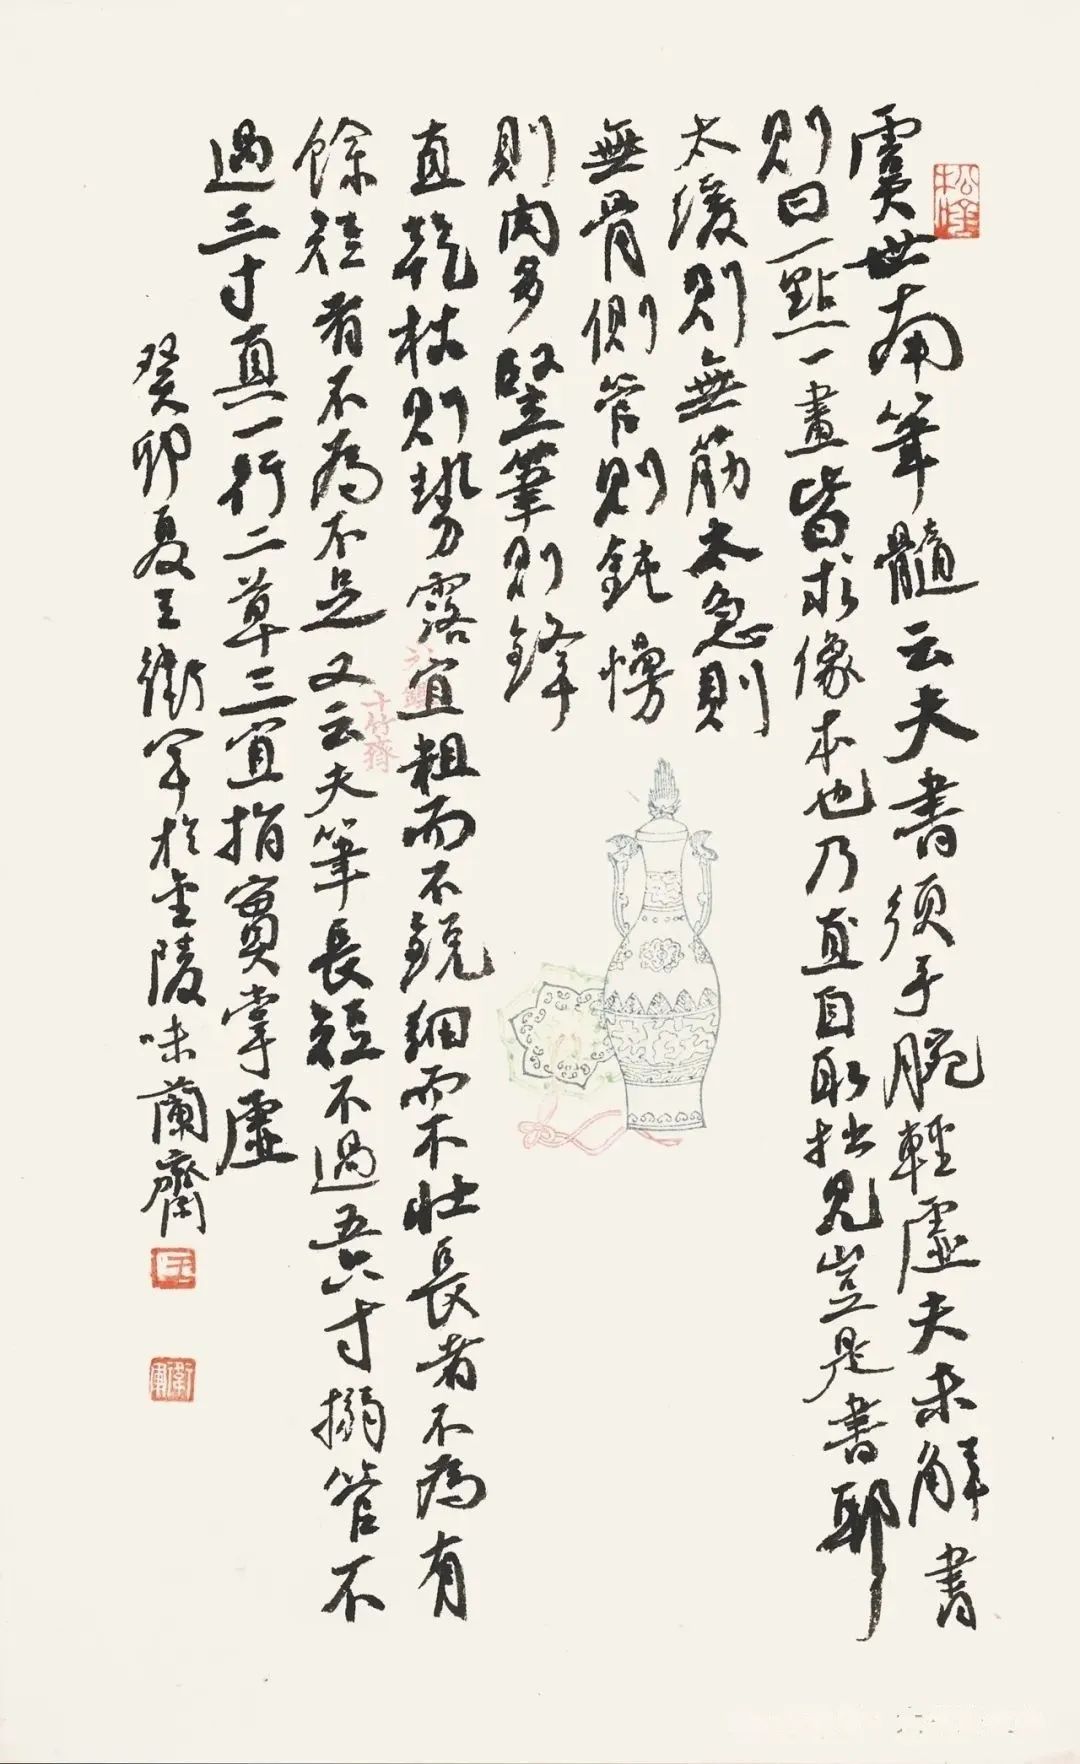 虞世南筆髓云夫書須手腕輕虛夫未解書
則曰一點一畫皆求像本也乃直自取拙見豈是書耶
太緩則無筋太急則
無骨側管則鈍慢
則肉多竪筆則鋒
直乾枯則勢露宜粗而不銳細而不壯長者不為有
餘短者不為不足又云夫筆長短不過五六寸搦管不
過三寸真一行二草三宜指實掌虛
癸卯夏王衛軍於金陵味蘭齋
十竹齋
王
衛軍